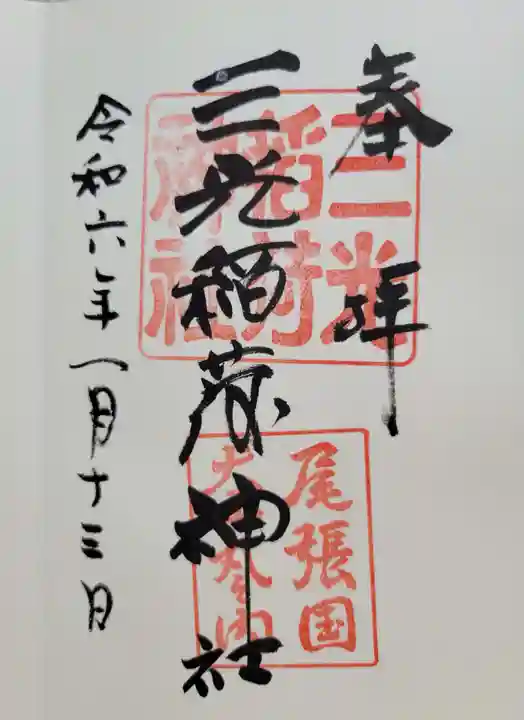 奉拝
三光稲荷神社
令和六年一月十三日
三光
稲荷
神社
尾張国